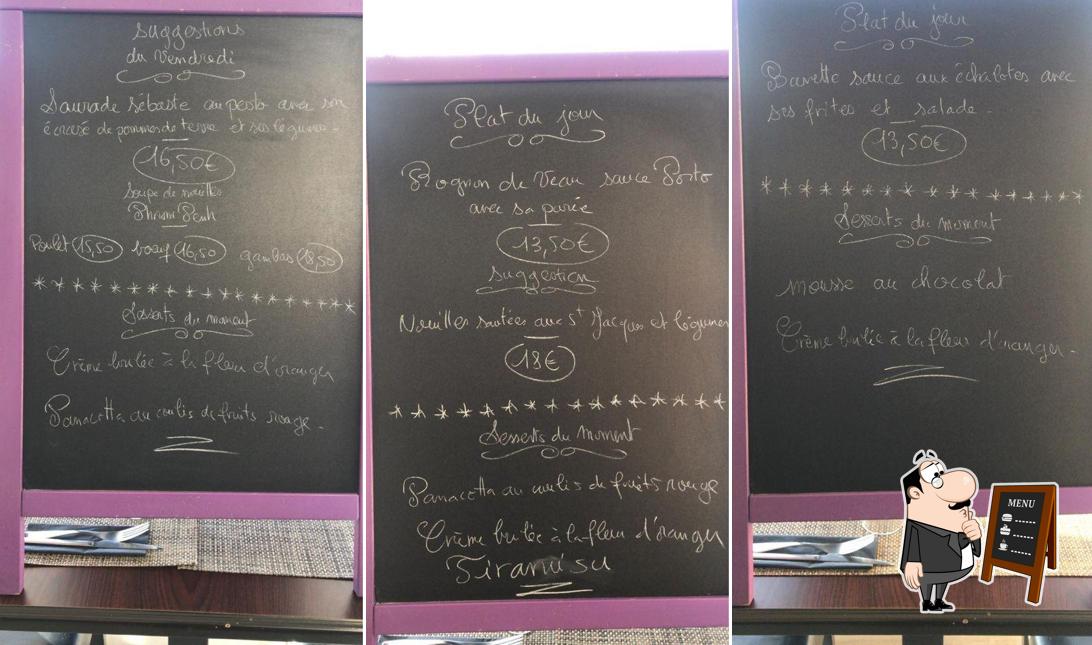 Suggestions
du Vendredi
Daurade sébaste au pesto avec son
écrasé de pommes de terre et ses légumes.
16,50€
Soupe de nouilles
Phnom Penh
Poulet 15,50 boeuf 16,50 gambas 18,50
Desserts du moment
Crème brulée à la fleur d'oranger
Panacotta au coulis de fruits rouge.
Plat du jour
Rognon de Veau sauce Porto
avec sa purée
13,50€
Suggestion
Nouilles sautées aux St Jacques et légumes
18€
Desserts du Moment
Panacotta au coulis de fruits rouge
Crème brulée à la fleur d'oranger
Tiramisu
Plat du jour
Bavette sauce aux échalotes avec
ses frites et salade.
13,50€
Desserts du moment
mousse au chocolat
Crème brulée à la fleur d'oranger.
MENU